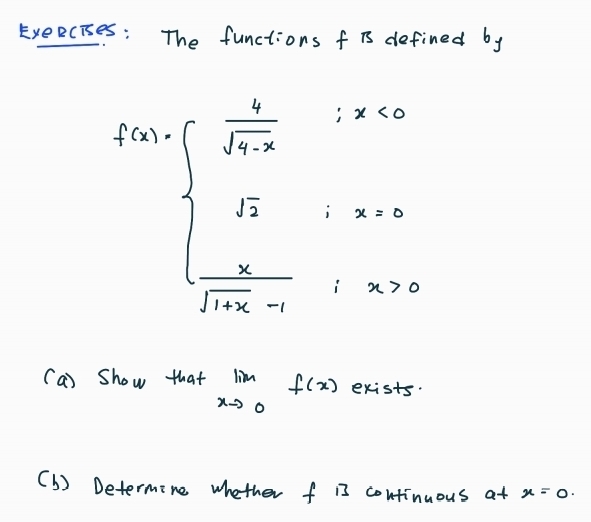 Exercises: The functions f is defined by
f(x) = { 4/√(4-x) ; x < 0
√2 ; x = 0
x/(√(1+x) -1) ; x > 0
(a) Show that lim x→0 f(x) exists.
(b) Determine whether f is continuous at x = 0.